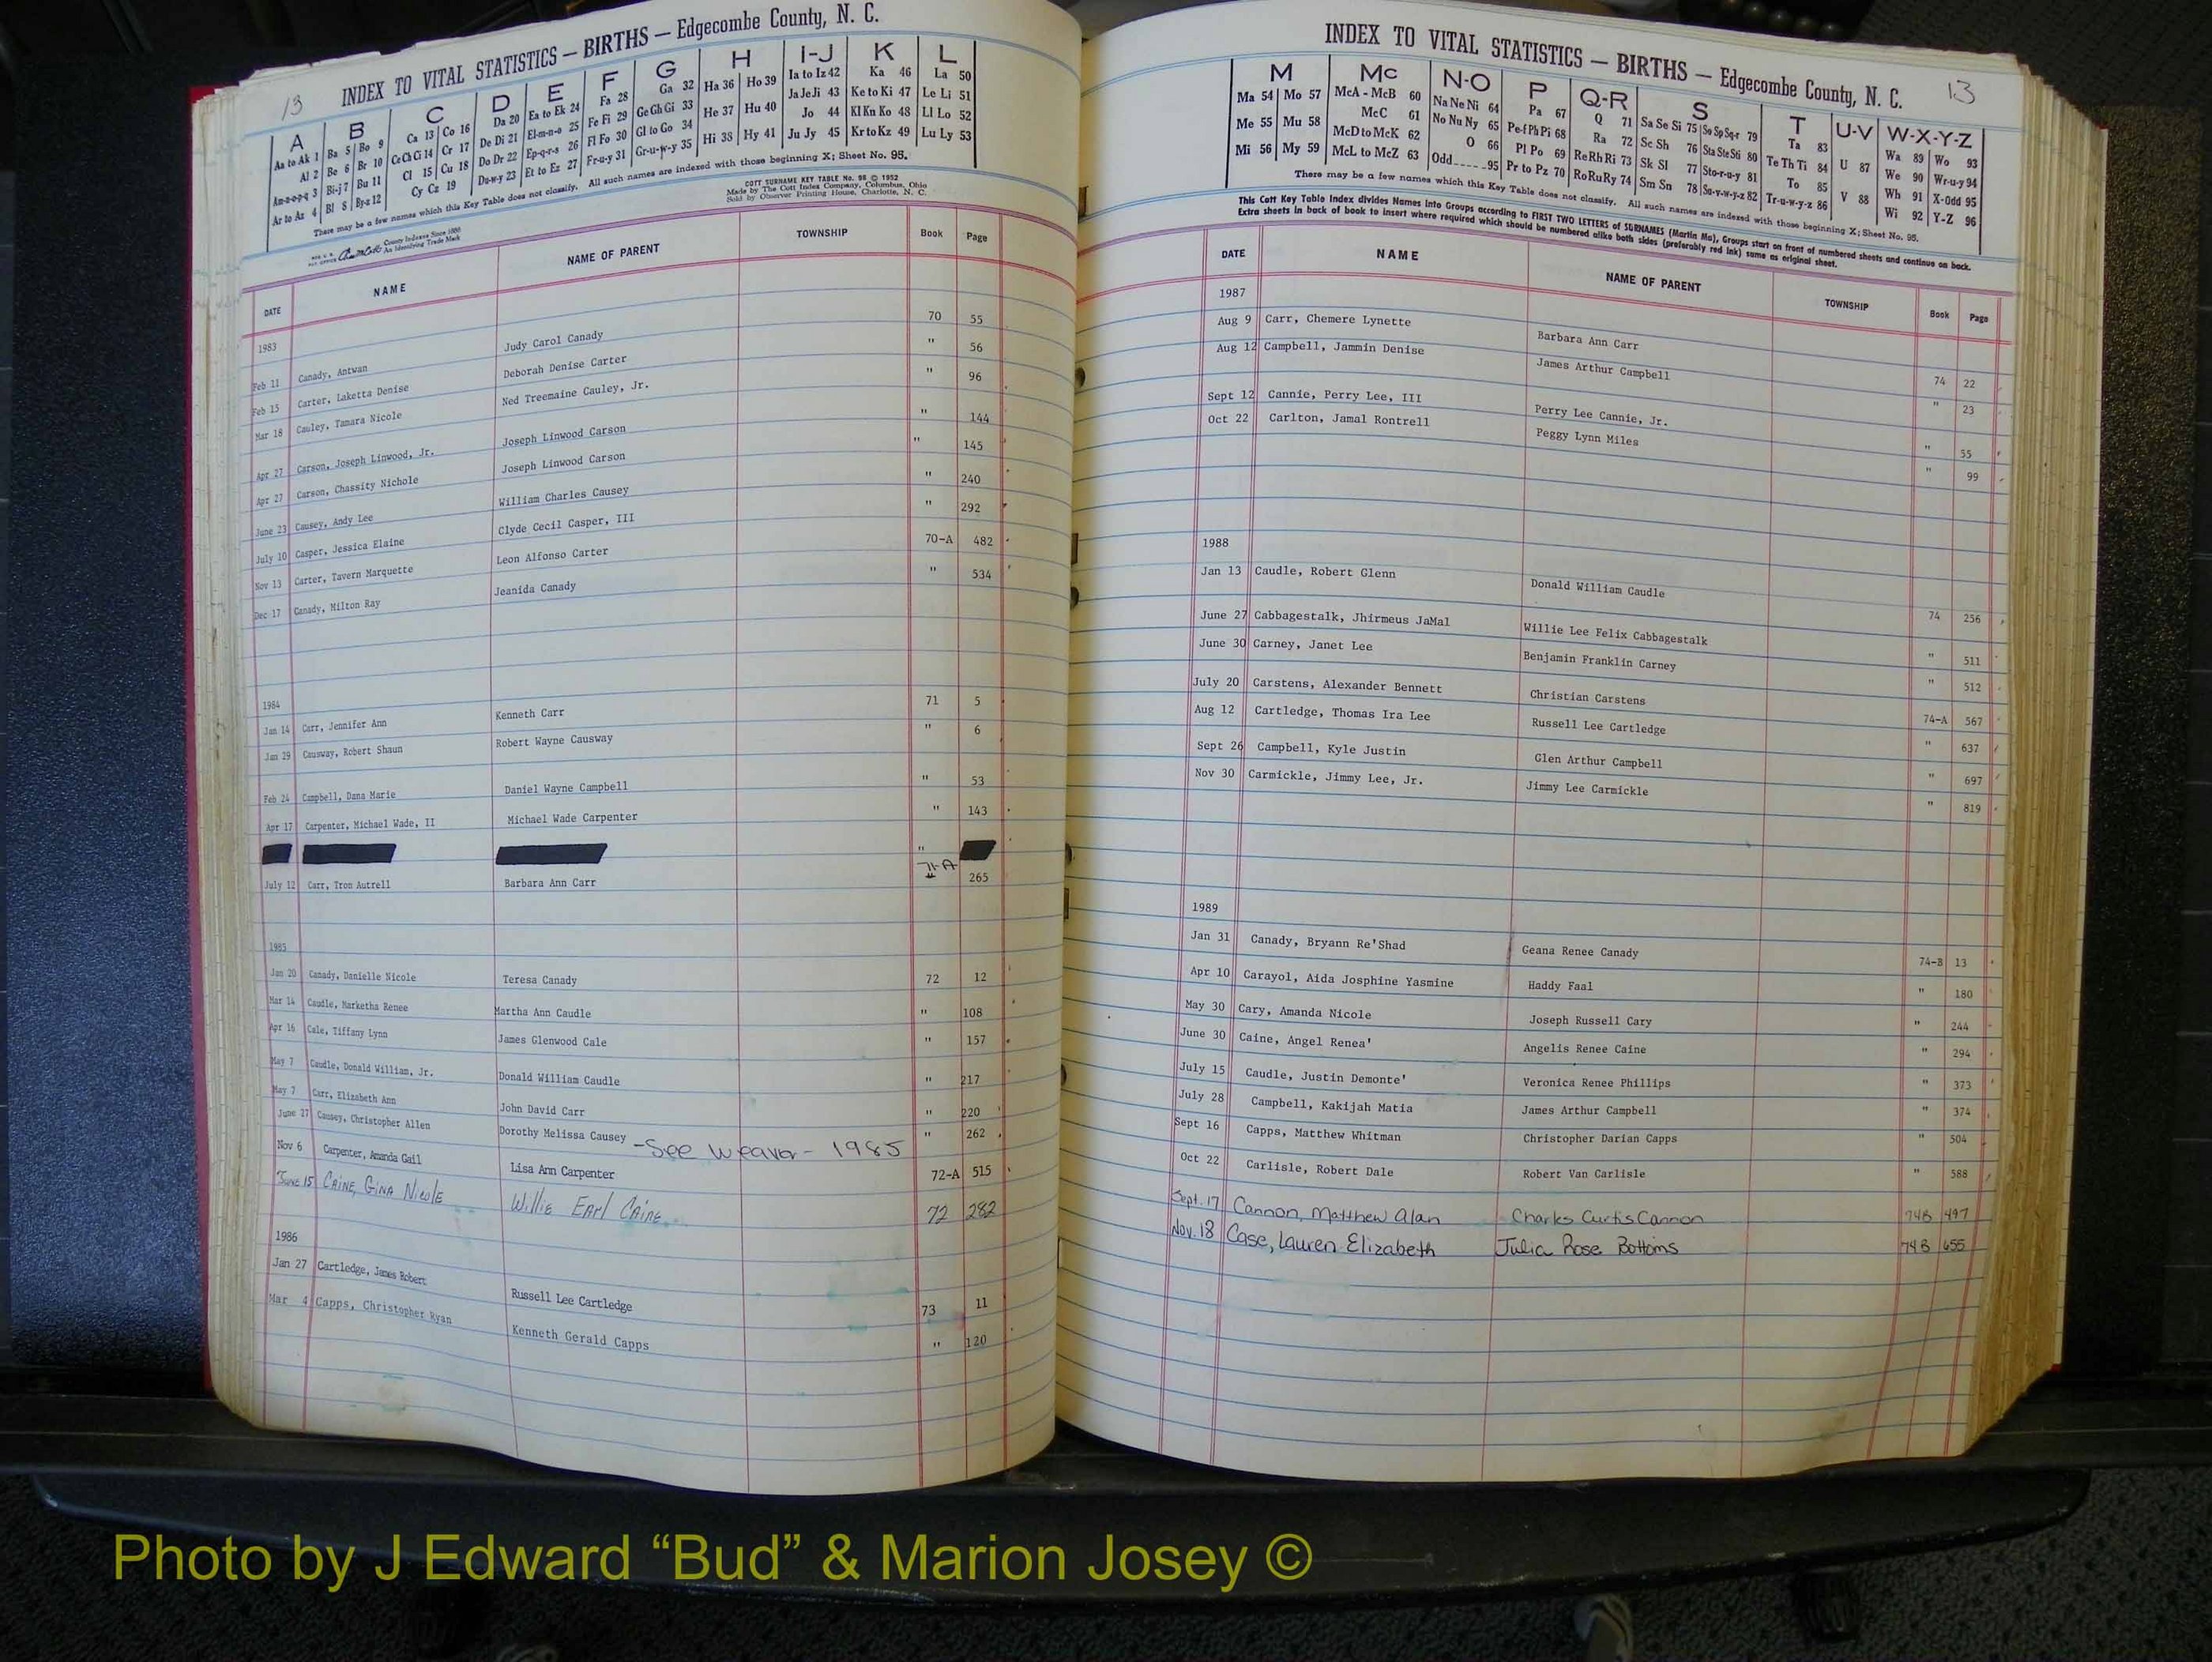 13 INDEX TO VITAL STATISTICS — BIRTHS — Edgecombe County, N. C.
A B C D E F G H I-J K L
Aa to Ak 1 Ba 5 Bo 9 Ca 13 Co 16 Da 20 Ea to Ek 24 Fa 28 Ga 32 Ha 36 Ho 39 Ia to Iz 42 Ka 46 La 50
Al 2 Be 6 Br 10 Ce Ch Ci 14 Cr 17 De Di 21 El-m-n-o 25 Fe Fi 29 Ge Gh Gi 33 He 37 Hu 40 Ja Je Ji 43 Ke to Ki 47 Le Li 51
Am-n-o-p-q 3 Bi-j 7 Bu 11 Cl 15 Cu 18 Do Dr 22 Ep-q-r-s 26 Fl Fo 30 Gl to Go 34 Hi 38 Hy 41 Jo 44 Kl Kn Ko 48 Ll Lo 52
Ar to Az 4 Bl 8 By-z 12 Cy Cz 19 Du-w-y 23 Et to Ez 27 Fr-u-y 31 Gr-u-w-y 35 Ju Jy 45 Kr to Kz 49 Lu Ly 53
There may be a few names which this Key Table does not classify. All such names are indexed with those beginning X; Sheet No. 95.
COTT SURNAME KEY TABLE No. 98 © 1952
Made by The Cott Index Company, Columbus, Ohio
Sold by Observer Printing House, Charlotte, N. C.
County Indexes Since 1888
An Identifying Trade Mark
DATE NAME NAME OF PARENT TOWNSHIP Book Page
1983
Feb 11 Canady, Antwan Judy Carol Canady 70 55
Feb 15 Carter, Laketta Denise Deborah Denise Carter " 56
Mar 18 Cauley, Tamara Nicole Ned Treemaine Cauley, Jr. " 96
Apr 27 Carson, Joseph Linwood, Jr. Joseph Linwood Carson " 144
Apr 27 Carson, Chassity Nichole Joseph Linwood Carson " 145
June 23 Causey, Andy Lee William Charles Causey " 240
July 10 Casper, Jessica Elaine Clyde Cecil Casper, III " 292
Nov 13 Carter, Tavern Marquette Leon Alfonso Carter 70-A 482
Dec 17 Canady, Milton Ray Jeanida Canady " 534
1984
Jan 14 Carr, Jennifer Ann Kenneth Carr 71 5
Jan 29 Causway, Robert Shaun Robert Wayne Causway " 6
Feb 24 Campbell, Dana Marie Daniel Wayne Campbell " 53
Apr 17 Carpenter, Michael Wade, II Michael Wade Carpenter " 143
"
July 12 Carr, Tron Autrell Barbara Ann Carr 71-A 265
1985
Jan 20 Canady, Danielle Nicole Teresa Canady 72 12
Mar 14 Caudle, Marketha Renee Martha Ann Caudle " 108
Apr 16 Cale, Tiffany Lynn James Glenwood Cale " 157
May 7 Caudle, Donald William, Jr. Donald William Caudle " 217
May 7 Carr, Elizabeth Ann John David Carr " 220
June 27 Causey, Christopher Allen Dorothy Melissa Causey — See Weaver - 1985 " 262
Nov 6 Carpenter, Amanda Gail Lisa Ann Carpenter 72-A 515
June 15 Caine, Gina Nicole Willie Earl Caine 72 282
1986
Jan 27 Cartledge, James Robert Russell Lee Cartledge 73 11
Mar 4 Capps, Christopher Ryan Kenneth Gerald Capps " 120
INDEX TO VITAL STATISTICS — BIRTHS — Edgecombe County, N. C. 13
M Mc N-O P Q-R S T U-V W-X-Y-Z
Ma 54 Mo 57 McA - McB 60 Na Ne Ni 64 Pa 67 Q 71 Sa Se Si 75 So Sp Sq-r 79 Ta 83 U 87 Wa 89 Wo 93
Me 55 Mu 58 McC 61 No Nu Ny 65 Pe-f Ph Pi 68 Ra 72 Sc Sh 76 Sta Ste Sti 80 Te Th Ti 84 V 88 We 90 Wr-u-y 94
Mi 56 My 59 McD to McK 62 O 66 Pl Po 69 Re Rh Ri 73 Sk Sl 77 Sto-r-u-y 81 To 85 Wh 91 X-Odd 95
McL to McZ 63 Odd 95 Pr to Pz 70 Ro Ru Ry 74 Sm Sn 78 Su-v-w-y-z 82 Tr-u-w-y-z 86 Wi 92 Y-Z 96
There may be a few names which this Key Table does not classify. All such names are indexed with those beginning X; Sheet No. 95.
This Cott Key Table Index divides Names into Groups according to FIRST TWO LETTERS of SURNAMES (Martin Ma), Groups start on front of numbered sheets and continue on back.
Extra sheets in back of book to insert where required which should be numbered alike both sides (preferably red ink) same as original sheet.
DATE NAME NAME OF PARENT TOWNSHIP Book Page
1987
Aug 9 Carr, Chemere Lynette Barbara Ann Carr 74 22
Aug 12 Campbell, Jammin Denise James Arthur Campbell " 23
Sept 12 Cannie, Perry Lee, III Perry Lee Cannie, Jr. " 55
Oct 22 Carlton, Jamal Rontrell Peggy Lynn Miles " 99
1988
Jan 13 Caudle, Robert Glenn Donald William Caudle 74 256
June 27 Cabbagestalk, Jhirmeus JaMal Willie Lee Felix Cabbagestalk " 511
June 30 Carney, Janet Lee Benjamin Franklin Carney " 512
July 20 Carstens, Alexander Bennett Christian Carstens 74-A 567
Aug 12 Cartledge, Thomas Ira Lee Russell Lee Cartledge " 637
Sept 26 Campbell, Kyle Justin Glen Arthur Campbell " 697
Nov 30 Carmickle, Jimmy Lee, Jr. Jimmy Lee Carmickle " 819
1989
Jan 31 Canady, Bryann Re'Shad Geana Renee Canady 74-B 13
Apr 10 Carayol, Aida Josphine Yasmine Haddy Faal " 180
May 30 Cary, Amanda Nicole Joseph Russell Cary " 244
June 30 Caine, Angel Renea' Angelis Renee Caine " 294
July 15 Caudle, Justin Demonte' Veronica Renee Phillips " 373
July 28 Campbell, Kakijah Matia James Arthur Campbell " 374
Sept 16 Capps, Matthew Whitman Christopher Darian Capps " 504
Oct 22 Carlisle, Robert Dale Robert Van Carlisle " 588
Sept. 17 Cannon, Matthew Alan Charles Curtis Cannon 74B 497
Nov. 18 Case, Lauren Elizabeth Julia Rose Bottoms 74B 655
Photo by J Edward “Bud” & Marion Josey ©